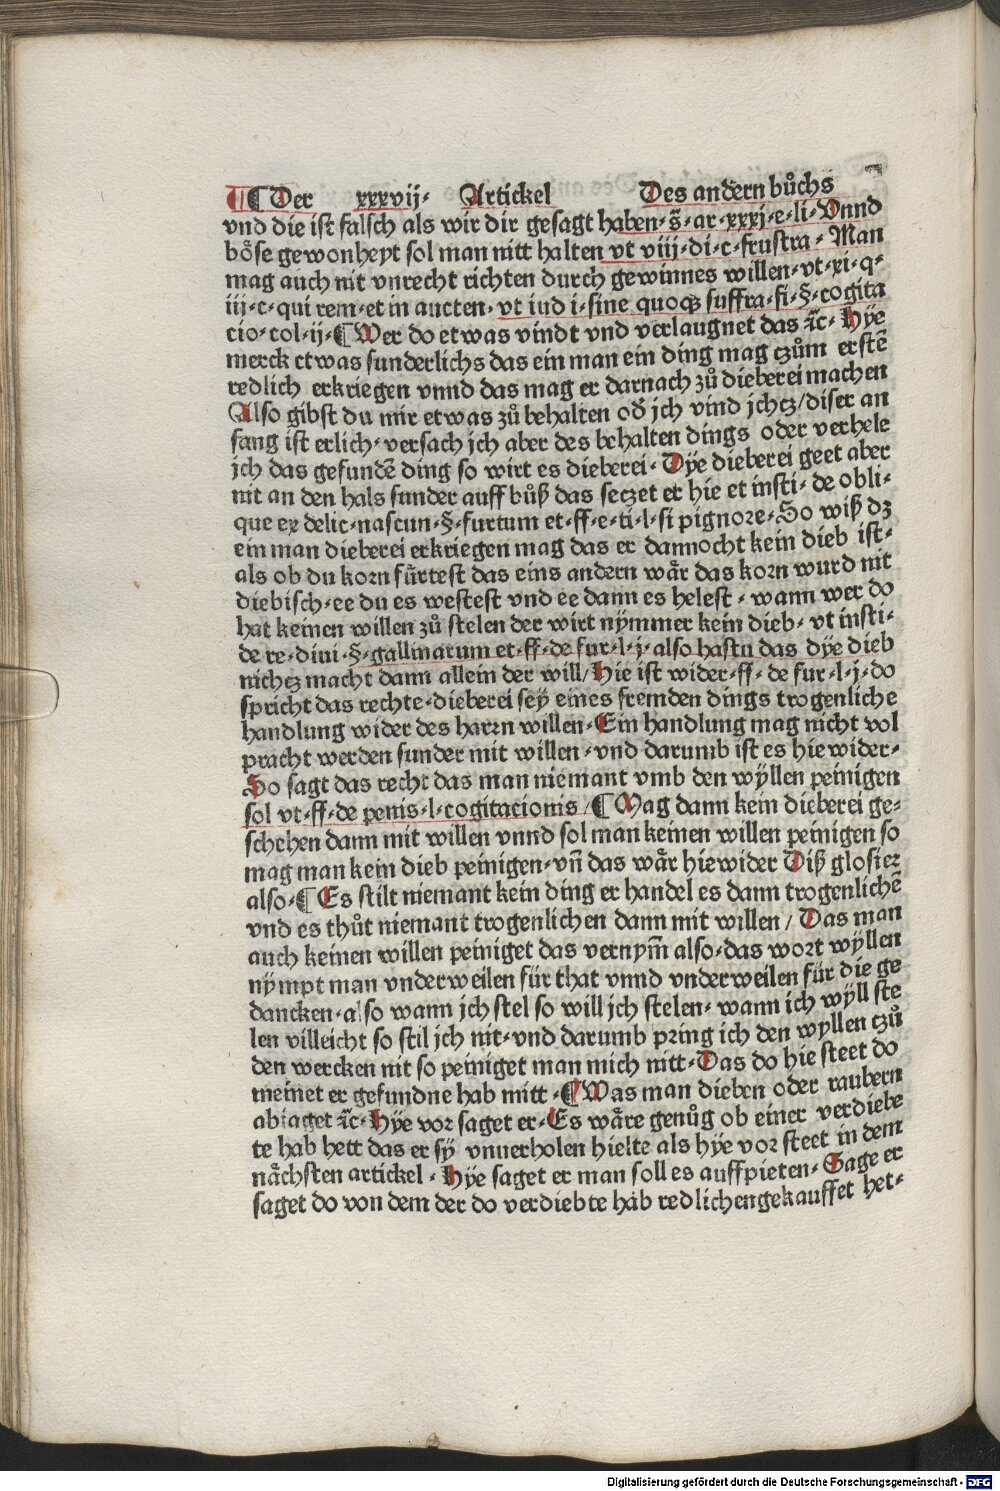 ¶ Der xxxvij· Artickel Des andern bůchs
vnd die ist falsch als wir dir gesagt haben· s̃· ar· xxxj· e· li· Vnnd
böse gewonheyt sol man nitt halten vt viij· di· c· frustra· Man
mag auch nit vnrecht richten durch gewinnes willen· vt· xi· q·
iij· c· qui rem· et in aucten· vt iud i· sine quoqꝫ suffra· fi· §· cogita
cio· col· ij· ¶ Wer do etwas vindt vnd verlaugnet das ꝛc̃· Hye
merck etwas sunderlichs das ein man ein ding mag czům erstē
redlich erkriegen vnnd das mag er darnach zů dieberei machen
Also gibst du mir etwas zů behalten od̕ jch vind jchcz/ diser an
fang ist erlich· versach jch aber des behalten dings oder verhele
jch das gefundē ding so wirt es dieberei· Dye dieberei geet aber
nit an den hals sunder auff bůß das seczet er hie et insti· de obli·
que ex delic· nascun· §· furtum et· ff· e· ti· l· si pignore· So wiß dꝫ
ein man dieberei erkriegen mag das er dannocht kein dieb ist·
als ob du korn fürtest das eins andern wår das korn wurd nit
diebisch· ee du es westest vnd ee dann es helest· wann wer do
hat keinen willen zů stelen der wirt nymmer kein dieb· vt insti·
de re· diui· §· gallinarum et· ff· de fur· l· j· also hastu das dye dieb
nichcz macht dann allein der will/ Hie ist wider· ff· de fur· l· j· do
spricht das rechte· dieberei sey eines fremden dings trogenliche
handlung wider des harrn willen· Ein handlung mag nicht vol
pracht werden sunder mit willen· vnd darumb ist es hie wider·
So sagt das recht das man niemant vmb den wyllen peinigen
sol vt· ff· de penis· l· cogitacionis/ ¶ Mag dann kein dieberei ge⸗
schehen dann mit willen vnnd sol man keinen willen peinigen so
mag man kein dieb peinigen· vñ das wår hiewider Diß glosier
also· ¶ Es stilt niemant kein ding er handel es dann trogenlichē
vnd es thůt niemant trogenlichen dann mit willen/ Das man
auch keinen willen peiniget das vernym̄ also· das wort wyllen
nympt man vnderweilen für that vnnd vnderweilen für die ge
dancken· also wann jch stel so will jch stelen· wann ich wyll ste
len villeicht so stil jch nit· vnd darumb pring ich den wyllen czů
den wercken nit so peiniget man mich nitt· Das do hie steet do
meinet er gefundne hab mitt· ¶ Was man dieben oder raubern
abiaget ꝛc̃· Hye vor saget er· Es wåre genůg ob einer verdiebe
te hab hett das er sy vnuerholen hielte als hye vor steet in dem
nåchsten artickel· Hye saget er man soll es auffpieten· Sage er
saget do von dem der do verdiebte hab redlichen gekauffet het·
Digitalisierung gefördert durch die Deutsche Forschungsgemeinschaft - DFG